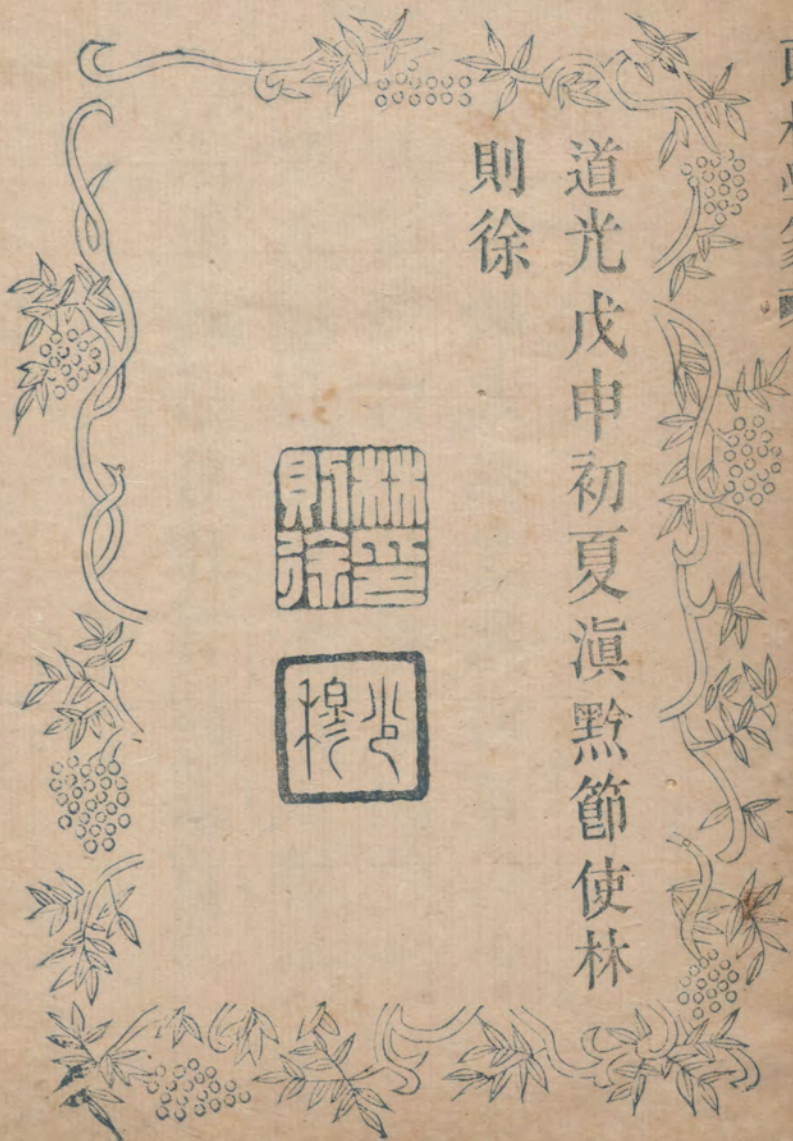 道光戊申初夏滇黔節使林
則徐
林印
則徐
少穆